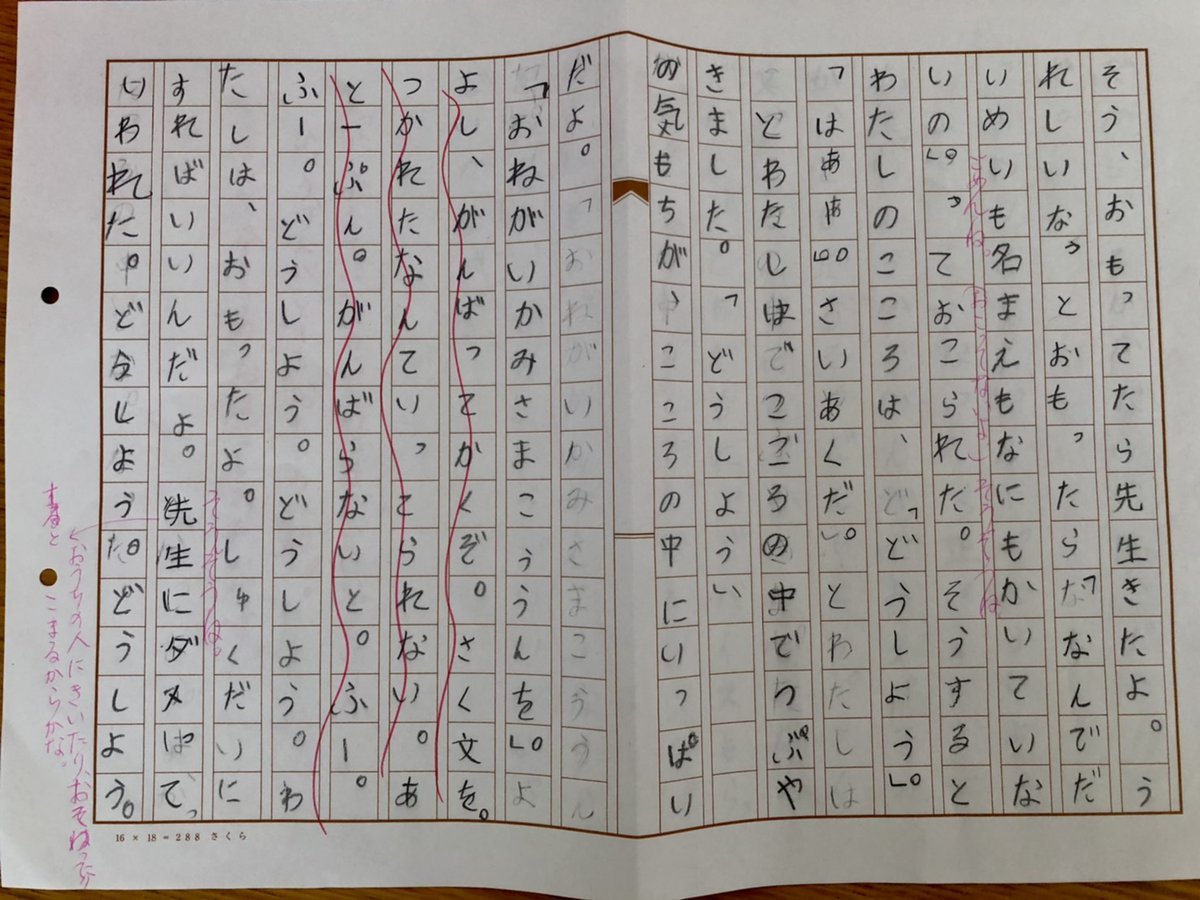 そう、おもってたら先生きたよ。う
れしいな。」とおもったら「なんでだ
いめいも名まえもなにもかいていな
いの。」っておこられた。そうすると
わたしのこころは、「どうしよう」。
「はぁぁ。」さいあくだ。」とわたしは
とわたしはでこごろの中でつぶや
きました。「どうしよう」
の気もちが、こころの中にいっぱい
だよ。「おねがいかみさまこううん
「おねがいかみさまこううんを」。よ
よし、がんばってかくぞ。さく文を。
つかれたなんていってられない。あ
と一ぷん。がんばらないと。ふー。
ふー。どうしよう。どうしよう。わ
たしは、おもったよ。しゅくだいに
すればいいんだよ。先生にダメばてっ
いわれた。どうしようだどうしよう。
ごめんね。
おこってないよ
そうそうね
そうそうね。
おうちの人にきいたり、おそわったり
すると こまるからかな。
16 × 18 = 288 さくら